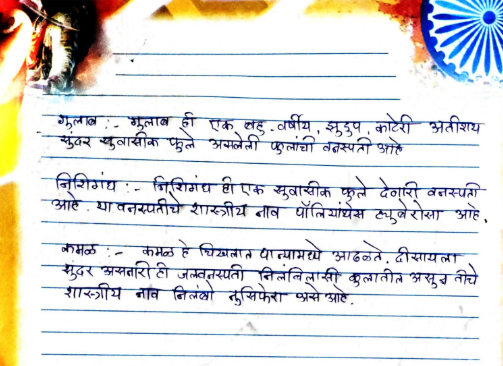 गुलाब :- गुलाब ही एक बहु. वर्षीय, झुडुप, काटेरी अतीशय
सुंदर सुवासीक फुले असलेली फुलांची वनस्पती आहे
निशिगंध :- निशिगंध ही एक सुवासीक फुले देणारी वनस्पती
आहे. या वनस्पतीचे शास्त्रीय नाव पॉलियांथेस ट्युबेरोसा आहे.
कमळ :- कमळ हे चिखलात पाण्यामध्ये आढळते. दीसायला
सुंदर असनारी ही जलवनस्पती निलंबिलासी कुलातील असुन तीचे
शास्त्रीय नाव निलंबो नुसिफेरा असे आहे.